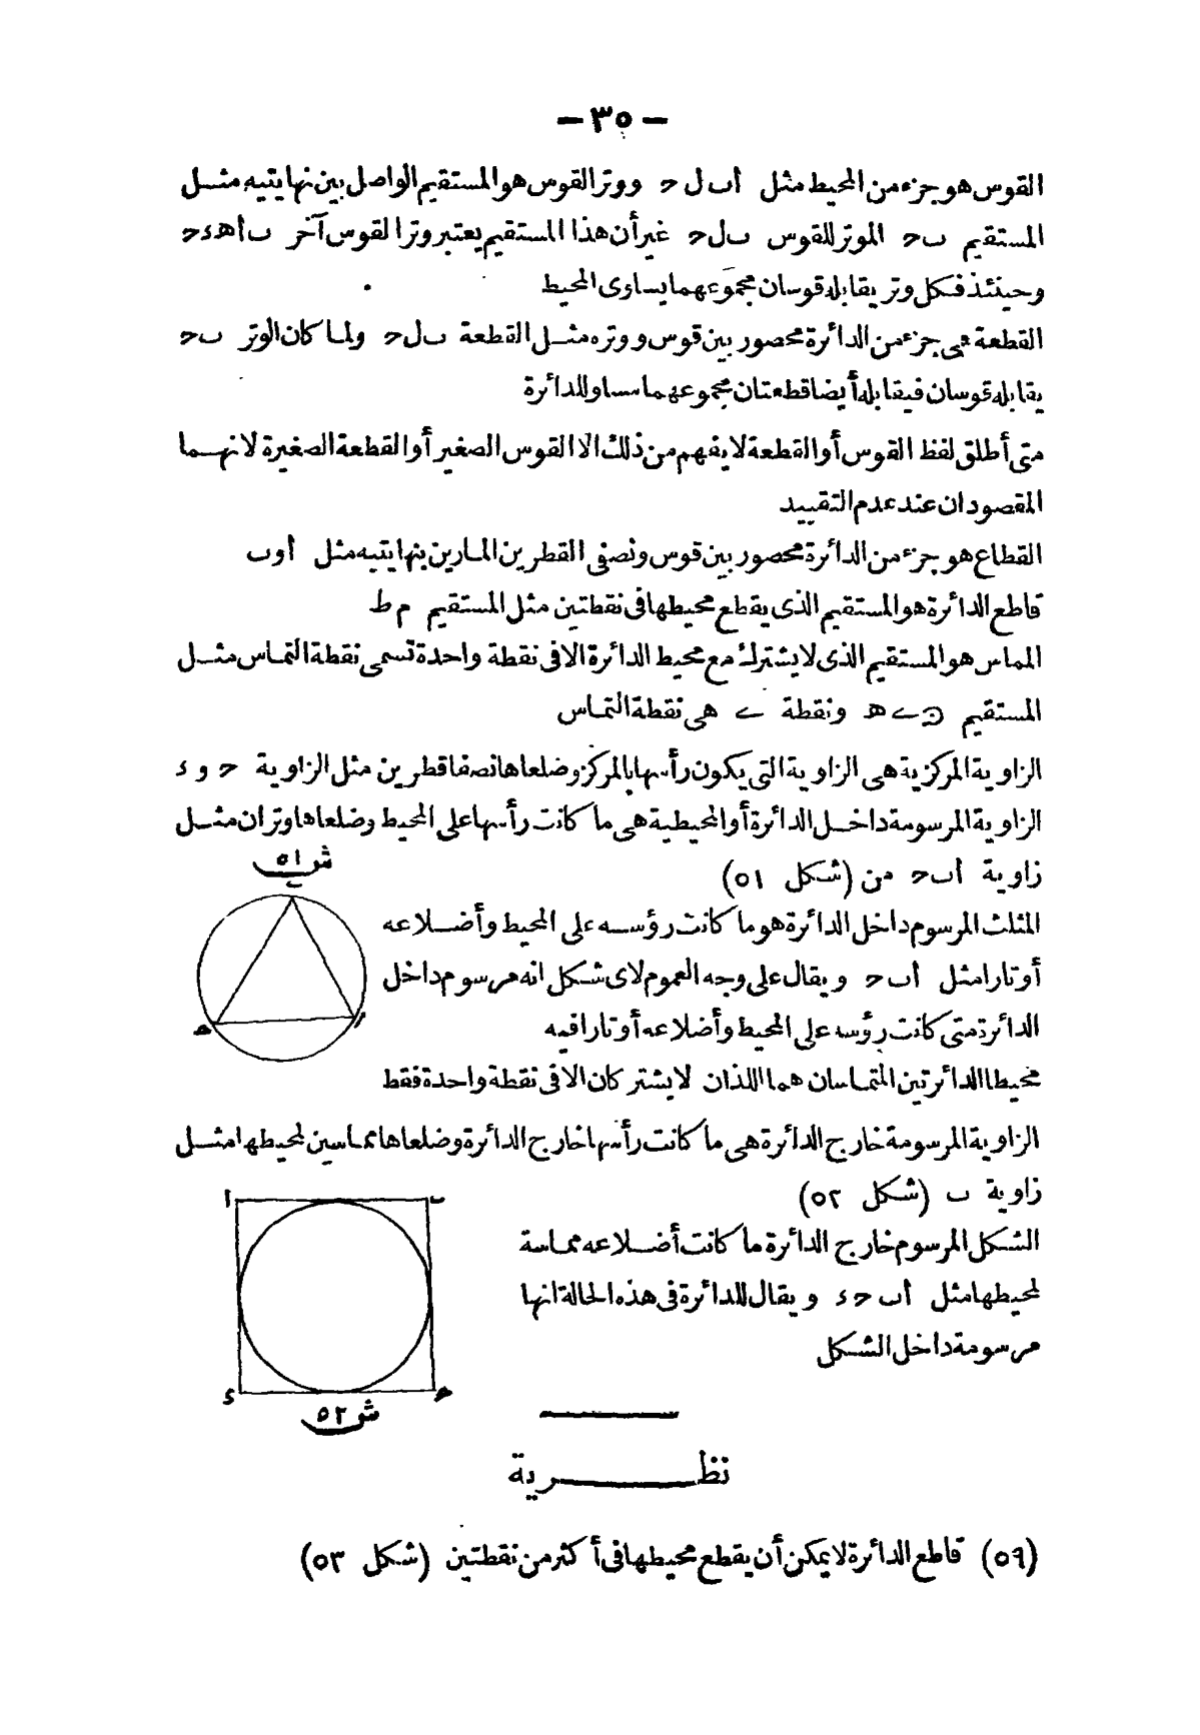 — ٣٥ —
القوس هو جزء من المحيط مثل أب ل ح ووتر القوس هو المستقيم الواصل بين نهايتيه مثل
المستقيم ب ح الموتر للقوس ب ل ح غير أن هذا المستقيم يعتبر وترا لقوس آخر ب أ ه ء ح
وحينئذ فكل وتر يقابله قوسان مجموعهما يساوى المحيط
القطعة هى جزء من الدائرة محصور بين قوس ووتره مثل القطعة ب ل ح ولما كان الوتر ب ح
يقابله قوسان فيقابله أيضا قطعتان مجموعهما مساو للدائرة
متى أطلق لفظ القوس أو القطعة لا يفهم من ذلك الا القوس الصغير أو القطعة الصغيرة لانهما
المقصودان عند عدم التقييد
القطاع هو جزء من الدائرة محصور بين قوس ونصفى القطرين المارين بنهايتيه مثل أ و ب
قاطع الدائرة هو المستقيم الذى يقطع محيطها فى نقطتين مثل المستقيم م ط
المماس هو المستقيم الذى لا يشترك مع محيط الدائرة الا فى نقطة واحدة تسمى نقطة التماس مثل
المستقيم ى ه ونقطة ى هى نقطة التماس
الزاوية المركزية هى الزاوية التى يكون رأسها بالمركز وضلعاها نصفا قطرين مثل الزاوية ح و ء
الزاوية المرسومة داخل الدائرة أو المحيطية هى ما كانت رأسها على المحيط وضلعاها وتران مثل
زاوية أ ب ح من (شكل ٥١)
ش ٥١
ب
المثلث المرسوم داخل الدائرة هو ما كانت رؤسه على المحيط وأضلاعه
أوتارا مثل أ ب ح ويقال على وجه العموم لاى شكل انه مرسوم داخل
الدائرة متى كانت رؤسه على المحيط وأضلاعه أوتارا فيه
ح ا
محيطا الدائرتين المتماسان هما اللذان لا يشتركان الا فى نقطة واحدة فقط
الزاوية المرسومة خارج الدائرة هى ما كانت رأسها خارج الدائرة وضلعاها مماسين لمحيطها مثل
زاوية ب (شكل ٥٢)
ا ب
الشكل المرسوم خارج الدائرة ما كانت أضلاعه مماسة
لمحيطها مثل أ ب ح ء ويقال للدائرة فى هذه الحالة انها
مرسومة داخل الشكل
ء ح
ش ٥٢
نظرية
(٥٦) قاطع الدائرة لا يمكن أن يقطع محيطها فى أكثر من نقطتين (شكل ٥٣)